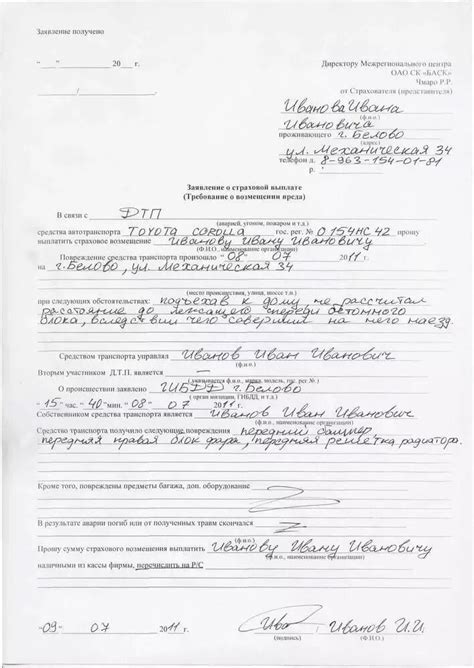 Заявление получено
"___" ________ 20___ г.
________/________
Директору Межрегионального центра
ОАО СК «БАСК»
Чмаро Р.Р.
от Страхователя (представителя)
Иванова Ивана
(ф.и.о.)
Ивановича
проживающего г. Белово
(адрес)
ул. Механическая 34
телефон д. 8-963-154-01-81
р.
Заявление о страховой выплате
(Требование о возмещении вреда)
В связи с ДТП
(аварией, угоном, пожаром и т.д.)
средства автотранспорта TOYOTA COROLLA гос. рег. № О 154 НС 42 прошу
выплатить страховое возмещение Иванову Ивану Ивановичу
(Ф.И.О., наименование организации)
Повреждение средства транспорта произошло "08" 07 2011 г.
на г. Белово, ул. Механическая 34
(место происшествия, улица, шоссе т.п.)
при следующих обстоятельствах: подъехав к дому не рассчитал
расстояние до лежащего спереди бетонного
блока, вследствии чего совершил на него наезд.
Средством транспорта управлял Иванов Иван Иванович
(ф.и.о.)
Вторым участником Д.Т.П. является —
(указывается ф.и.о., марка, модель, гос. рег. №)
О происшествии заявлено ГИБДД г. Белово
(орган милиции, ГИБДД, и т.п.)
"15" час. "40" мин. "08" 07 2011 г.
Собственником средства транспорта является Иванов Иван Иванович
(ф.и.о., наименование организации)
Средство транспорта получило следующие повреждения передний бампер
передняя правая блок фара, передняя решетка радиатора.
Кроме того, повреждены предметы багажа, доп. оборудование
В результате аварии погиб или от полученных травм скончался
Прошу сумму страхового возмещения выплатить Иванову Ивану Ивановичу
(ф.и.о., наименование организации)
наличными из кассы фирмы, перечислить на Р/С
"09" 07 2011 г.
Иван Иванов И.И.
(подпись) (Ф.И.О.)